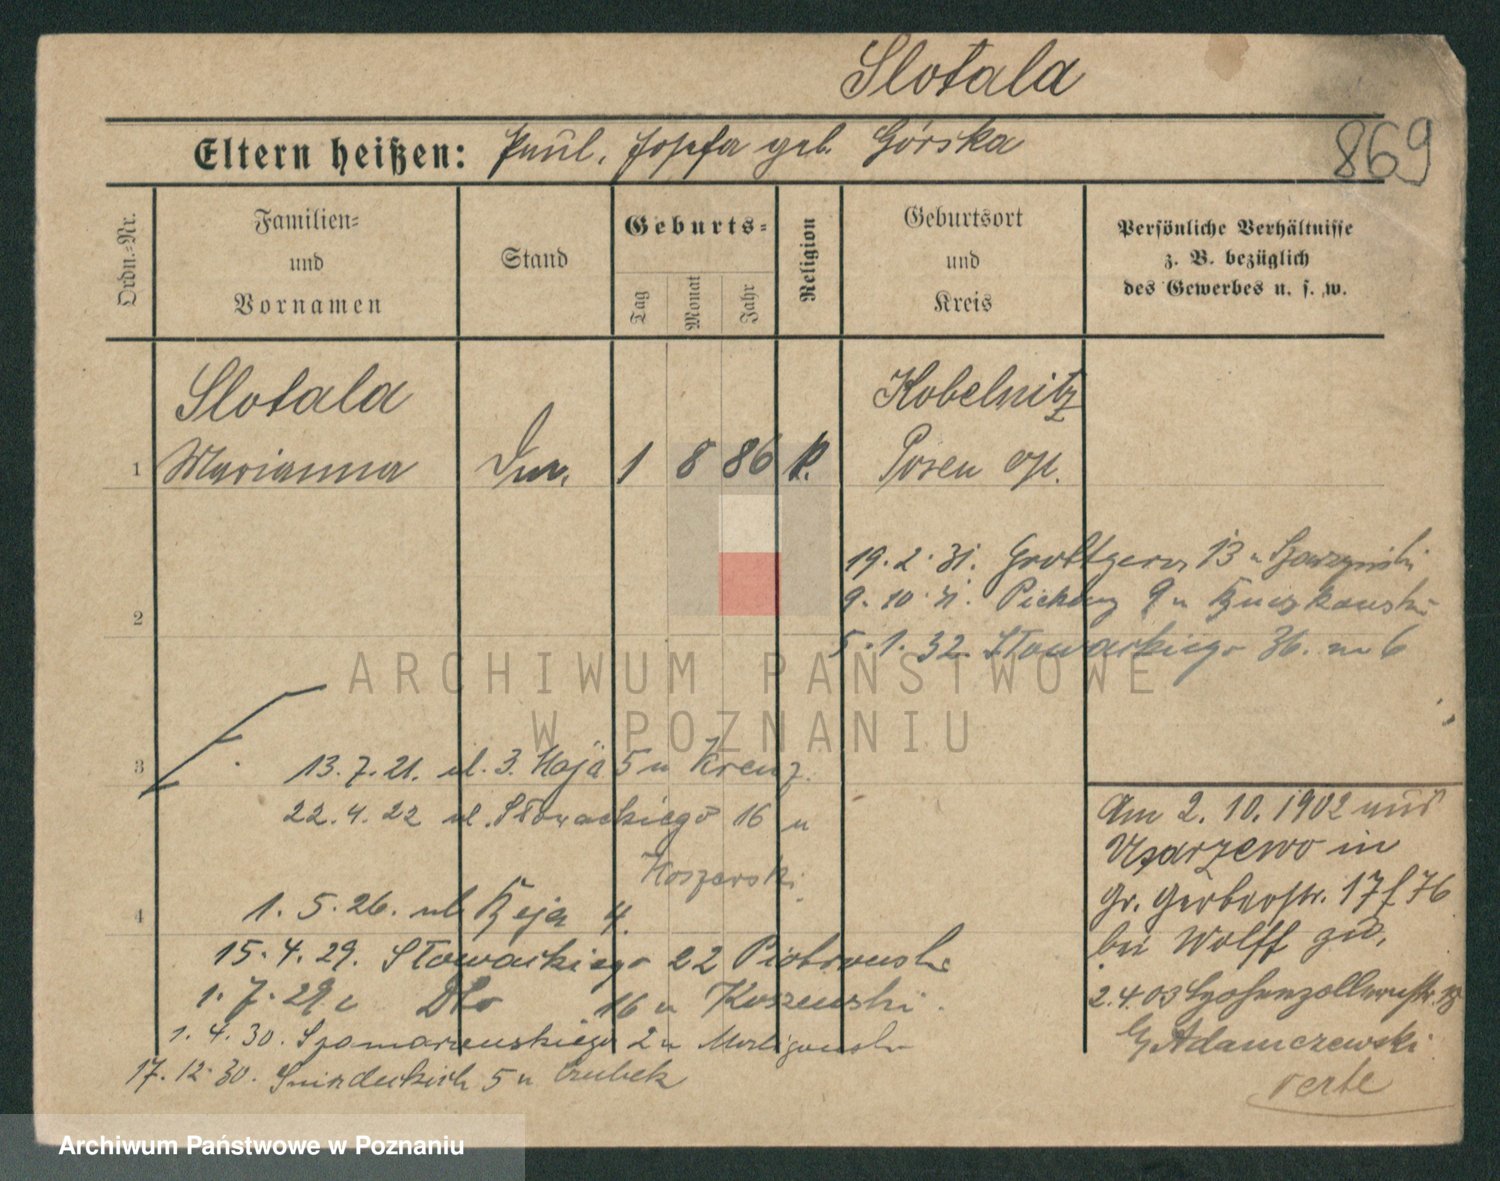 Slotala
869
Eltern heißen: Paul, Josefa geb. Górska
Ordn.-Nr.
Familien-
und
Vornamen
Stand
Geburts-
Tag
Monat
Jahr
Religion
Geburtsort
und
Kreis
Persönliche Verhältnisse
z. B. bezüglich
des Gewerbes u. s. w.
Slotala
Kobelnitz
1 Marianna 1 8 86 k. Posen
19. 2. 31. Grottgera 13
2 9. 10. 31. 9 u
5. 1. 32. Słowackiego 36. m 6
ARCHIWUM PAŃSTWOWE
W POZNANIU
3 13. 7. 21. ul. 3. Maja 5 u Krenz.
22. 4. 22 ul. Słowackiego 16 u
Koszarski
4 1. 5. 26. ul. Reja 4.
15. 4. 29. Słowackiego 22 Piotrowski
1. 7. 29 Dto 16 u
1. 4. 30. Szamarzewskiego 2 u
17. 12. 30. Śniadeckich 5 u
Am 2. 10. 1902 aus
Uzarzewo in
Gr. Gerberstr. 17 f 76
bei Wolff zu.
2. 4. 03 Hohenzollernstr.
Adamczewski
verte
Archiwum Państwowe w Poznaniu